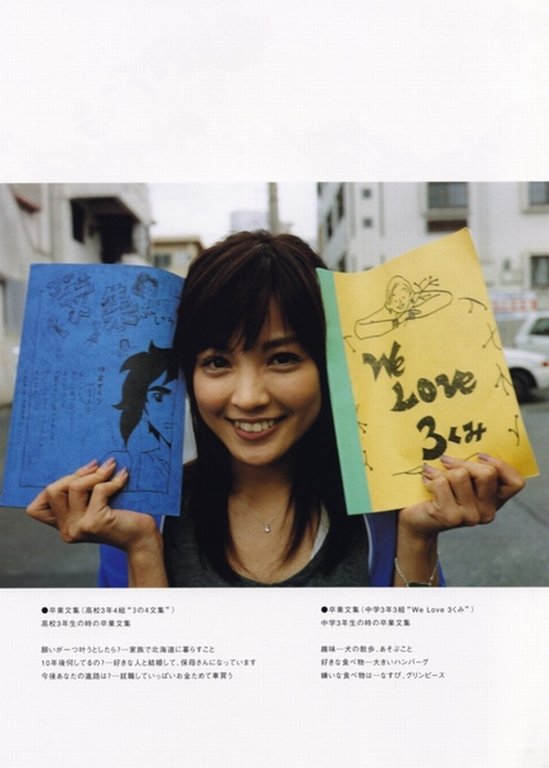 卒業
We
Love
3くみ
●卒業文集（高校3年4組“3の4文集”）
高校3年生の時の卒業文集
願いが一つ叶うとしたら?…家族で北海道に暮らすこと
10年後何してるの?…好きな人と結婚して、保母さんになっています
今後あなたの進路は?…就職していっぱいお金ためて車買う
●卒業文集（中学3年3組“We Love 3くみ”）
中学3年生の時の卒業文集
趣味…犬の散歩、あそぶこと
好きな食べ物…大きいハンバーグ
嫌いな食べ物は…なすび、グリンピース